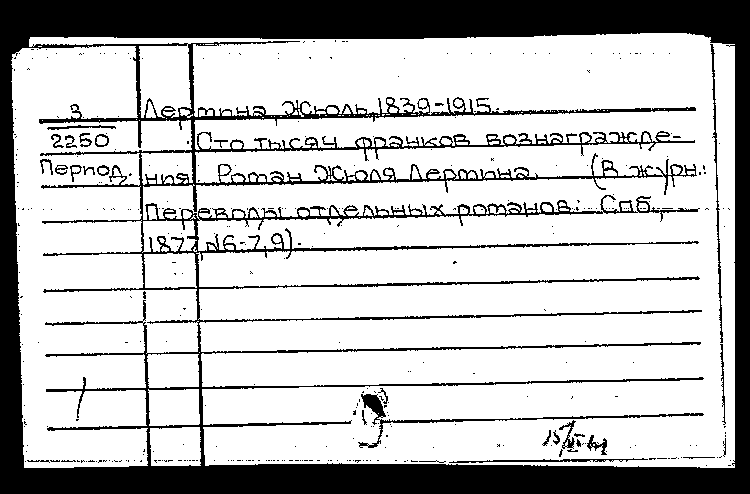 3
2250
Период.
Лермина, Жюль, 1839-1915.
Сто тысяч франков вознагражде-
ния. Роман Жюля Лермина. (В журн.:
Переводы отдельных романов: Спб.,
1877, №6-7, 9).